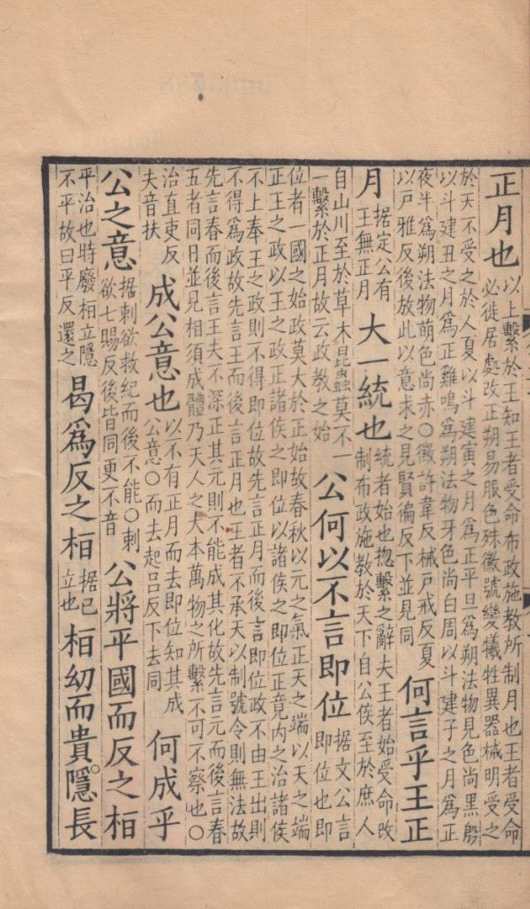 正月也
以上繫於王知王者受命布政施教所制月也王者受命
必徙居處改正朔易服色殊徽號變犧牲異器械明受之
於天不受之於人夏以斗建寅之月為正平旦為朔法物見色尚黑殷
以斗建丑之月為正雞鳴為朔法物牙色尚白周以斗建子之月為正
夜半為朔法物萌色尚赤○徽許韋反械戶戒反夏
以戶雅反後放此以意求之見賢徧反下並見同
何言乎王正
月
据定公有
王無正月
大一統也
統者始也揔繫之辭夫王者始受命改
制布政施教於天下自公侯至於庶人
自山川至於草木昆蟲莫不一
一繫於正月故云政教之始
公何以不言即位
据文公言
即位也即
位者一國之始政莫大於正始故春秋以元之氣正天之端以天之端
正王之政以王之政正諸侯之即位以諸侯之即位正竟內之治諸侯
不上奉王之政則不得即位故先言正月而後言即位政不由王出則
不得為政故先言王而後言正月也王者不承天以制號令則無法故
先言春而後言王夫不深正其元則不能成其化故先言元而後言春
五者同日並見相須成體乃天人之大本萬物之所繫不可不察也○
治直吏反
夫音扶
成公意也
以不有正月而去即位知其成
公意○而去起呂反下去同
何成乎
公之意
据刺欲救紀而後不能○刺
欲七賜反後皆同更不音
公將平國而反之桓
平治也時廢桓立隱
不平故曰平反還之
曷為反之桓
据已
立也
桓幼而貴隱長